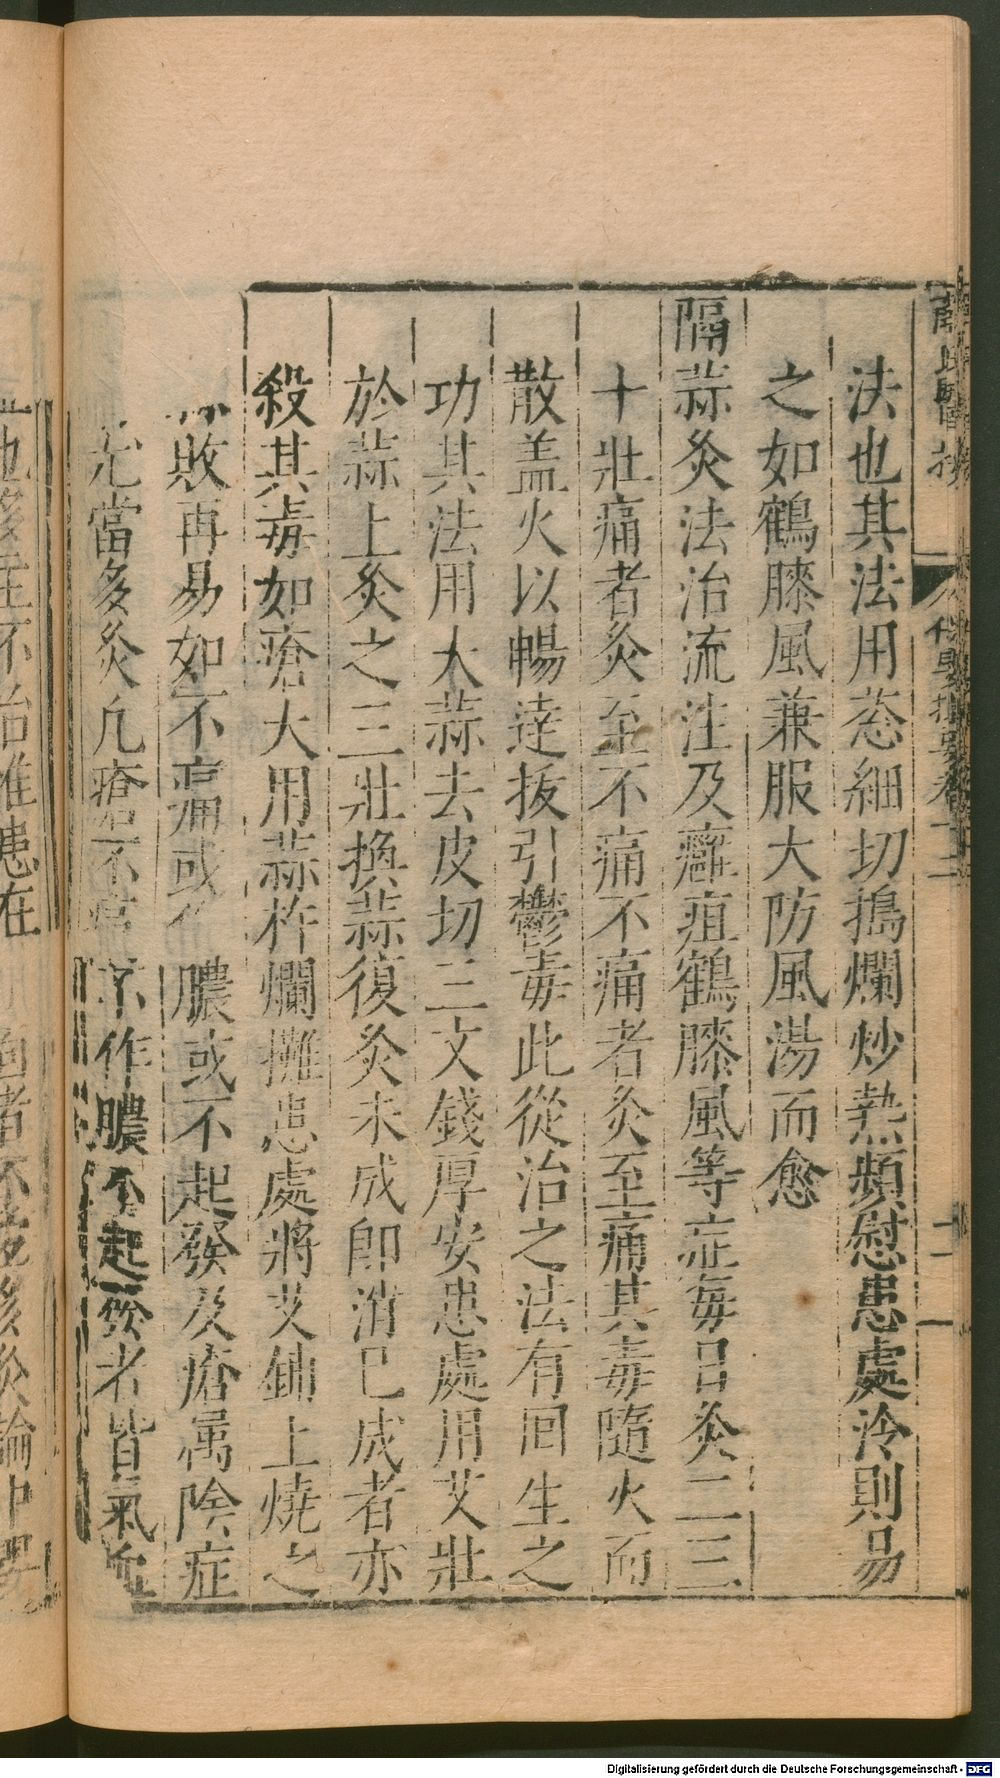 法也其法用葱細切搗爛炒熱頻慰患處冷則易
之如鶴膝風兼服大防風湯而愈
隔蒜灸法治流注及癰疽鶴膝風等症每日灸二三
十壯痛者灸至不痛不痛者灸至痛其毒隨火而
散盖火以暢達拔引鬱毒此從治之法有回生之
功其法用大蒜去皮切三文錢厚安患處用艾壯
於蒜上灸之三壯換蒜復灸未成即消已成者亦
殺其毒如瘡大用蒜杵爛攤患處將艾鋪上燒之
敗再易如不痛或 膿或不起發及瘡属陰症
尤當多灸凡瘡不 作膿不起發者皆氣
也 不治惟患在
論中
Digitalisierung gefördert durch die Deutsche Forschungsgemeinschaft - DFG